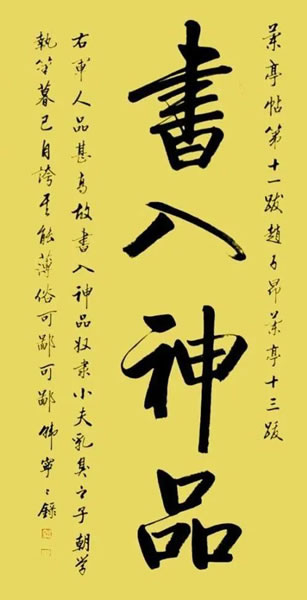 蘭亭帖第十一跋趙子昂蘭亭十三跋
書入神品
右軍人品甚高故書入神品奴隸小夫乳臭之子朝學
執筆暮已自誇其能薄俗可鄙可鄙 韓寧〻錄